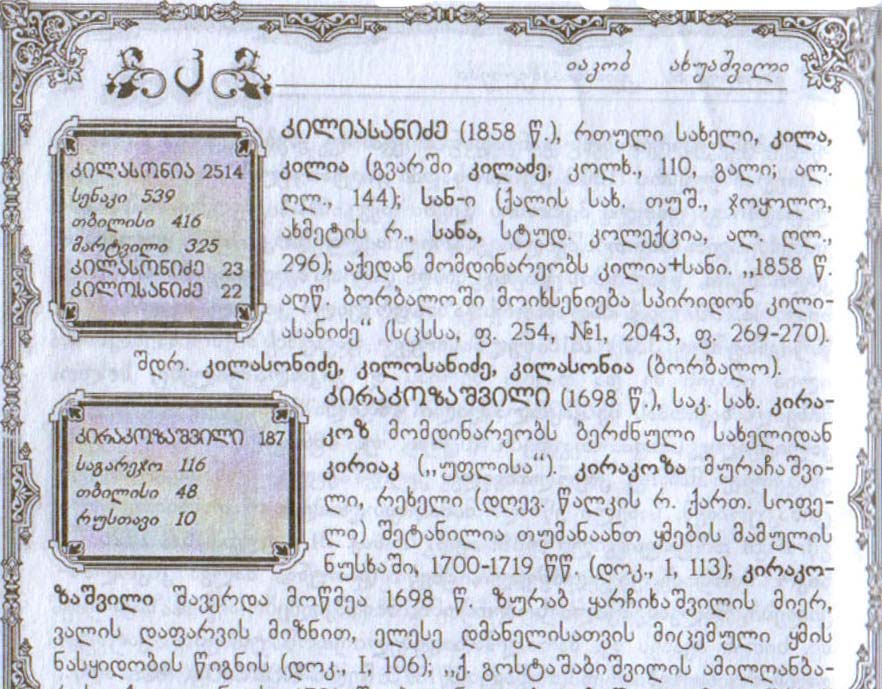 იაკობ ახუაშვილი
კ
კილასონია 2514
სენაკი 539
თბილისი 416
მარტვილი 325
კილასონიძე 23
კილოსანიძე 22
კილიასანიძე (1858 წ.), რთული სახელი, კილა,
კილია (გვარში კილაძე, კოლხ., 110, გალი; ალ.
ღლ., 144); სან-ი (ქალის სახ. თუშ., ჯოყოლო,
ახმეტის რ., სანა, სტუდ. კოლექცია, ალ. ღლ.,
296); აქედან მომდინარეობს კილია+სანი. „1858 წ.
აღწ. ბორბალოში მოიხსენიება სპირიდონ კილი-
ასანიძე“ (სცსსა, ფ. 254, №1, 2043, ფ. 269-270).
შდრ. კილასონიძე, კილოსანიძე, კილასონია (ბორბალო).
კირაკოზაშვილი 187
საგარეჯო 116
თბილისი 48
რუსთავი 10
კირაკოზაშვილი (1698 წ.), საკ. სახ. კირა-
კოზ მომდინარეობს ბერძნული სახელიდან
კირიაკ („უფლისა“). კირაკოზა მურაჩაშვი-
ლი, რეხელი (დღევ. წალკის რ. ქართ. სოფე-
ლი) შეტანილია თუმანაანთ ყმების მამულის
ნუსხაში, 1700-1719 წწ. (დოკ., 1, 113); კირაკო-
ზაშვილი შავერდა მოწმეა 1698 წ. ზურაბ ყარჩიხაშვილის მიერ,
ვალის დაფარვის მიზნით, ელესე დმანელისათვის მიცემული ყმის
ნასყიდობის წიგნის (დოკ., I, 106); „ქ. გოსტაშაბიშვილის ამილღანბა-